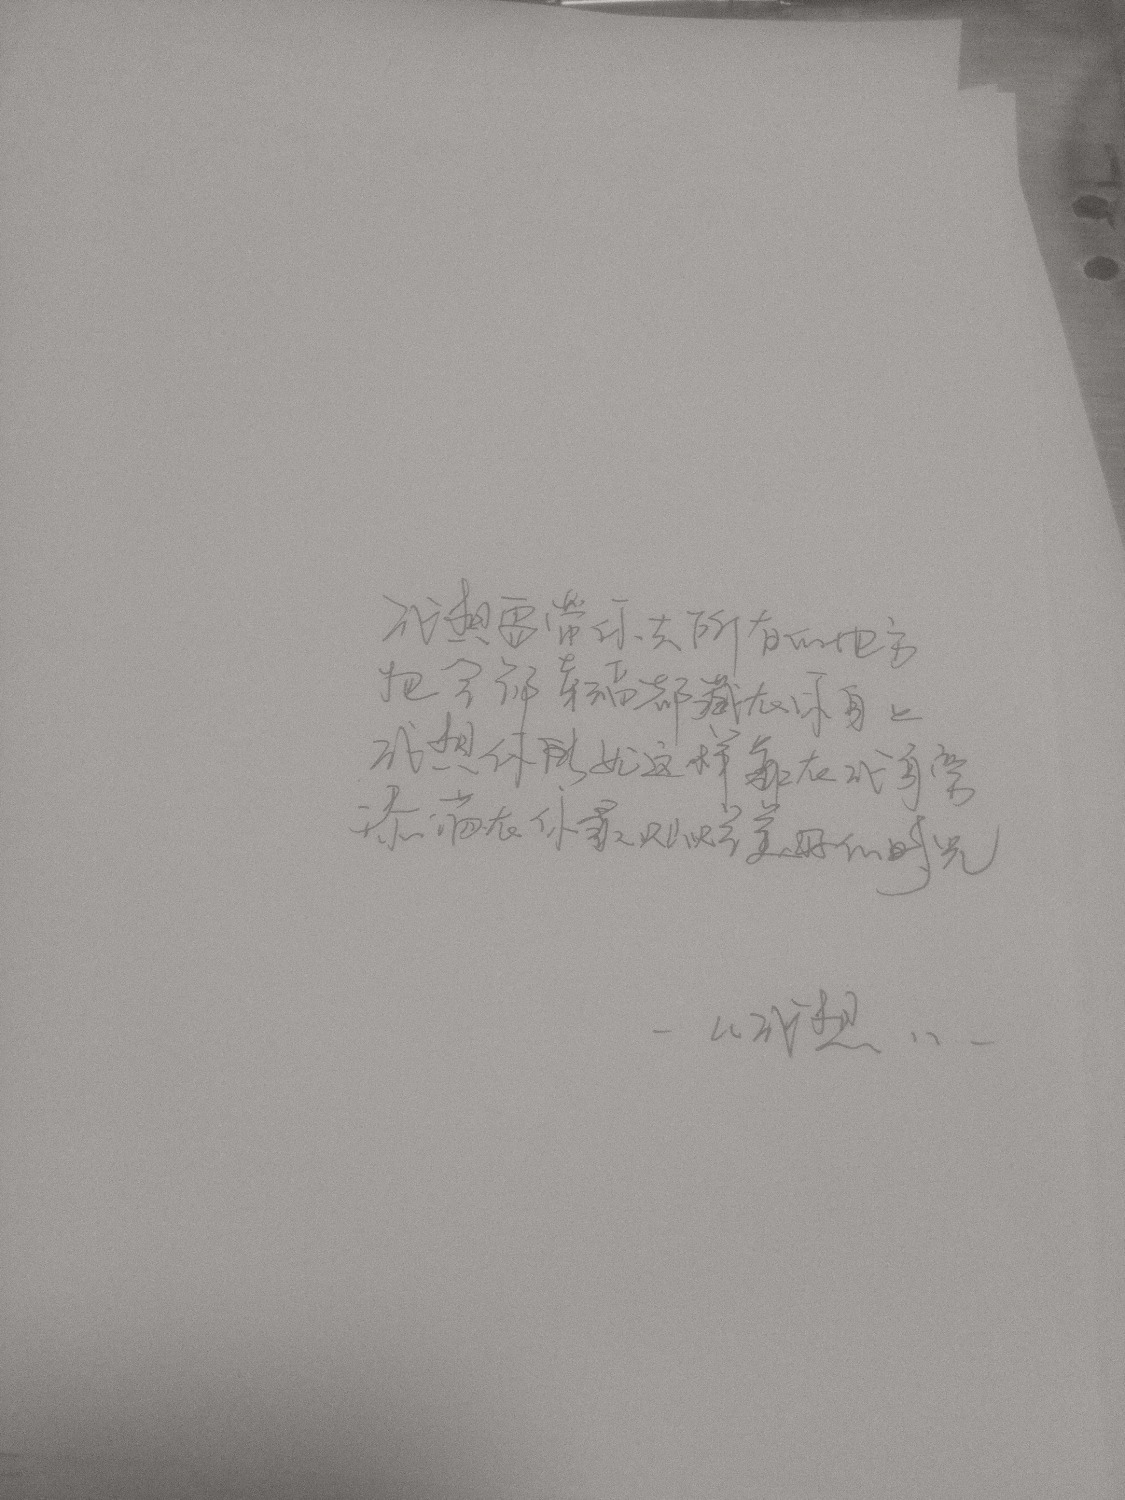 我想要带你去所有的地方
把全部幸福都藏在你身上
我想你能这样靠在我身旁
添满在你最美好的时光
-《我想》-